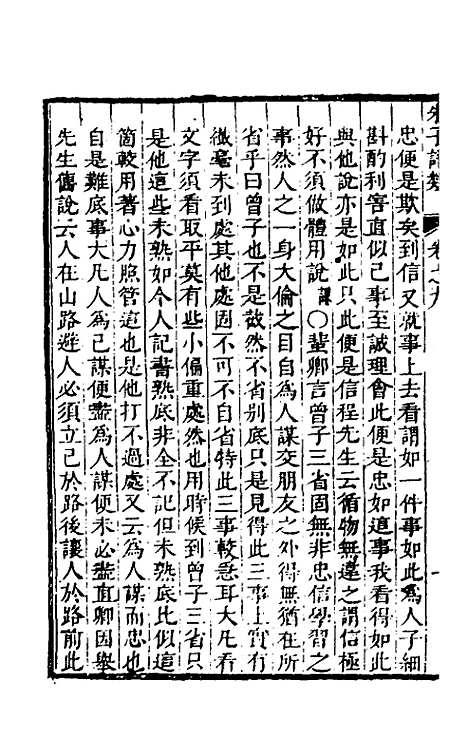 朱子語類 卷
忠便是欺矣到信又就事上去看謂如一件事如此爲人子細
斟酌利害直似己事至誠理會此便是忠如這事我看得如此
與他說亦是如此只此便是信程先生云循物無違之謂信極
好不須做體用說謨〇蜚卿言曾子三省固無非忠信學習之
事然人之一身大倫之目自爲人謀交朋友之外得無猶在所
省乎曰曾子也不是截然不省別底只是見得此三事上實有
微毫未到處其他處固不可不自省特此三事較急耳大凡看
文字須看取平莫有些小偏重處然也用時候到曾子三省只
是他這些未熟如今人記書熟底非全不記但未熟底比似這
箇較用著心力照管這也是他打不過處又云爲人謀而忠也
自是難底事大凡人爲己謀便盡爲人謀便未必盡直卿因舉
先生舊說云人在山路避人必須立己於路後讓人於路前此